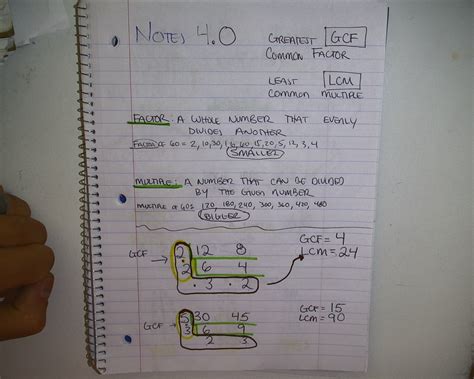 NOTES 4.0
GREATEST GCF
COMMON FACTOR
LEAST LCM
COMMON MULTIPLE
FACTOR: A WHOLE NUMBER THAT EVENLY
DIVIDES ANOTHER
FACTORS OF 60 = 2, 10, 30, 1, 60, 15, 20, 5, 12, 3, 4
SMALLER
MULTIPLE: A NUMBER THAT CAN BE DIVIDED
BY THE GIVEN NUMBER
MULTIPLE OF 60: 120, 180, 240, 300, 360, 420, 480
BIGGER
GCF → 2 12 8
2 6 4
· 3 · 2
GCF = 4
LCM = 24
GCF → 5 30 45
3 6 9
2 3
GCF = 15
LCM = 90